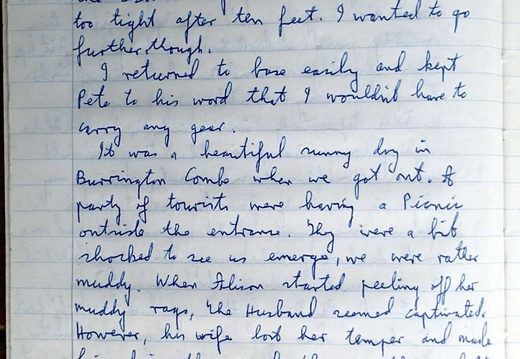 too tight after ten feet. I wanted to go
further, though.
I returned to base easily and kept
Pete to his word that I wouldn't have to
carry any gear.
It was a beautiful sunny day in
Burrington Combe when we got out. A
party of tourists were having a Picnic
outside the entrance. They were a bit
shocked to see us emerge, we were rather
muddy. When Alison started peeling off her
muddy rags, the Husband seemed captivated.
However, his wife lost her temper and made